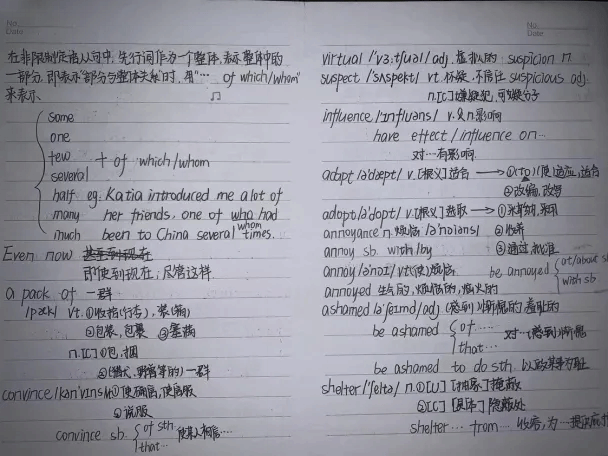 No.
Date
在非限制定语从句中,先行词作为一个整体,表示整体中的
一部分,即表示"部分与整体关系"时,用"… of which/whom"
来表示
some
one
few
several + of which/whom
half eg: Katia introduced me a lot of
many her friends, one of who had
whom
much been to China several times.
Even now 甚至到现在
即使到现在;尽管这样
a pack of 一群
/pæk/ vt. ①收拾(行李),装(箱)
②包装,包裹 ③塞满
n.[C] ①包,捆
②(猎犬,野兽等的)一群
convince /kən'vɪns/ vt ①使确信,使信服
②说服
convince sb. of sth 使某人相信…
that…
No.
Date
virtual /'vɜːtʃuəl/ adj. 虚拟的 suspicion n.
suspect /'sʌspekt/ vt. 怀疑,不信任 suspicious adj.
n.[C] 嫌疑犯,可疑分子
influence /'ɪnfluəns/ v.& n 影响
have effect / influence on…
对…有影响
adapt /ə'dæpt/ v.[根义]适合 → ①(to)(使)适应,适合
②改编,改写
adopt /ə'dɒpt/ v.[根义]选取 → ①采纳,采用
annoyance n. 烦恼 /ə'nɔɪəns/ ②收养
annoy sb. with/by ③通过,批准
annoy /ə'nɔɪ/ vt(使)烦恼 be annoyed at/about s
with sb.
annoyed 生气的,烦恼的,恼火的
ashamed /ə'ʃeɪmd/ adj (感到)惭愧的 羞耻的
be ashamed of… 对…(感到)惭愧
that…
be ashamed to do sth 以做某事为耻
shelter /'ʃeltə/ n.①[U] [抽象] 掩蔽
②[C] [具体] 隐蔽处
shelter… from…